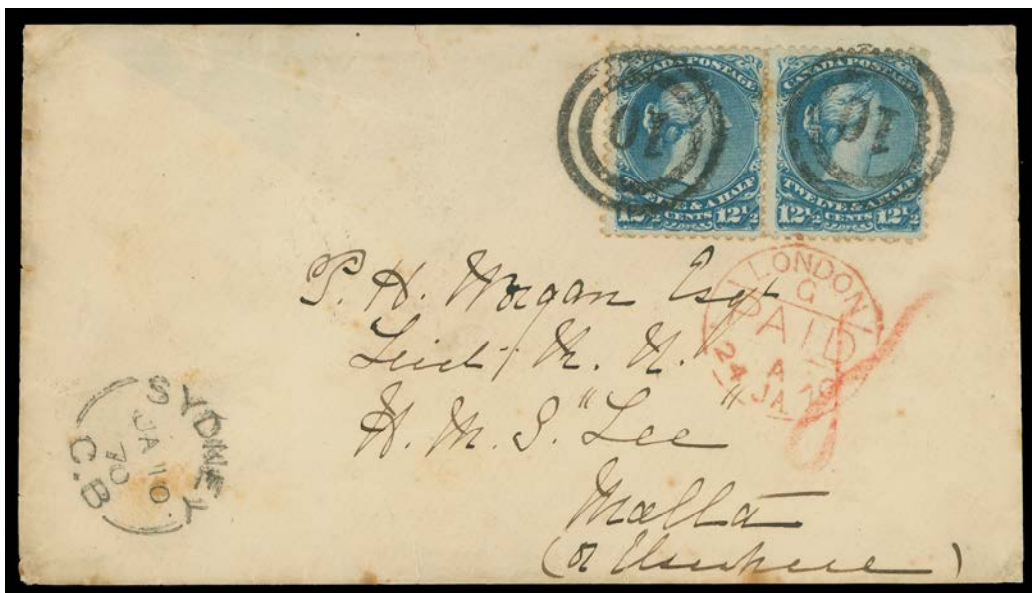 CANADA POSTAGE
TWELVE & A HALF
12½ CENTS 12½
10
CANADA POSTAGE
TWELVE & A HALF
12½ CENTS 12½
10
P. H. Morgan Esqr
Lieut, R. N.
H. M. S. "Lee"
Malta
(or Elsewhere)
LONDON
G
PAID
A
24 JA 70
SYDNEY
JA 10
70
C.B